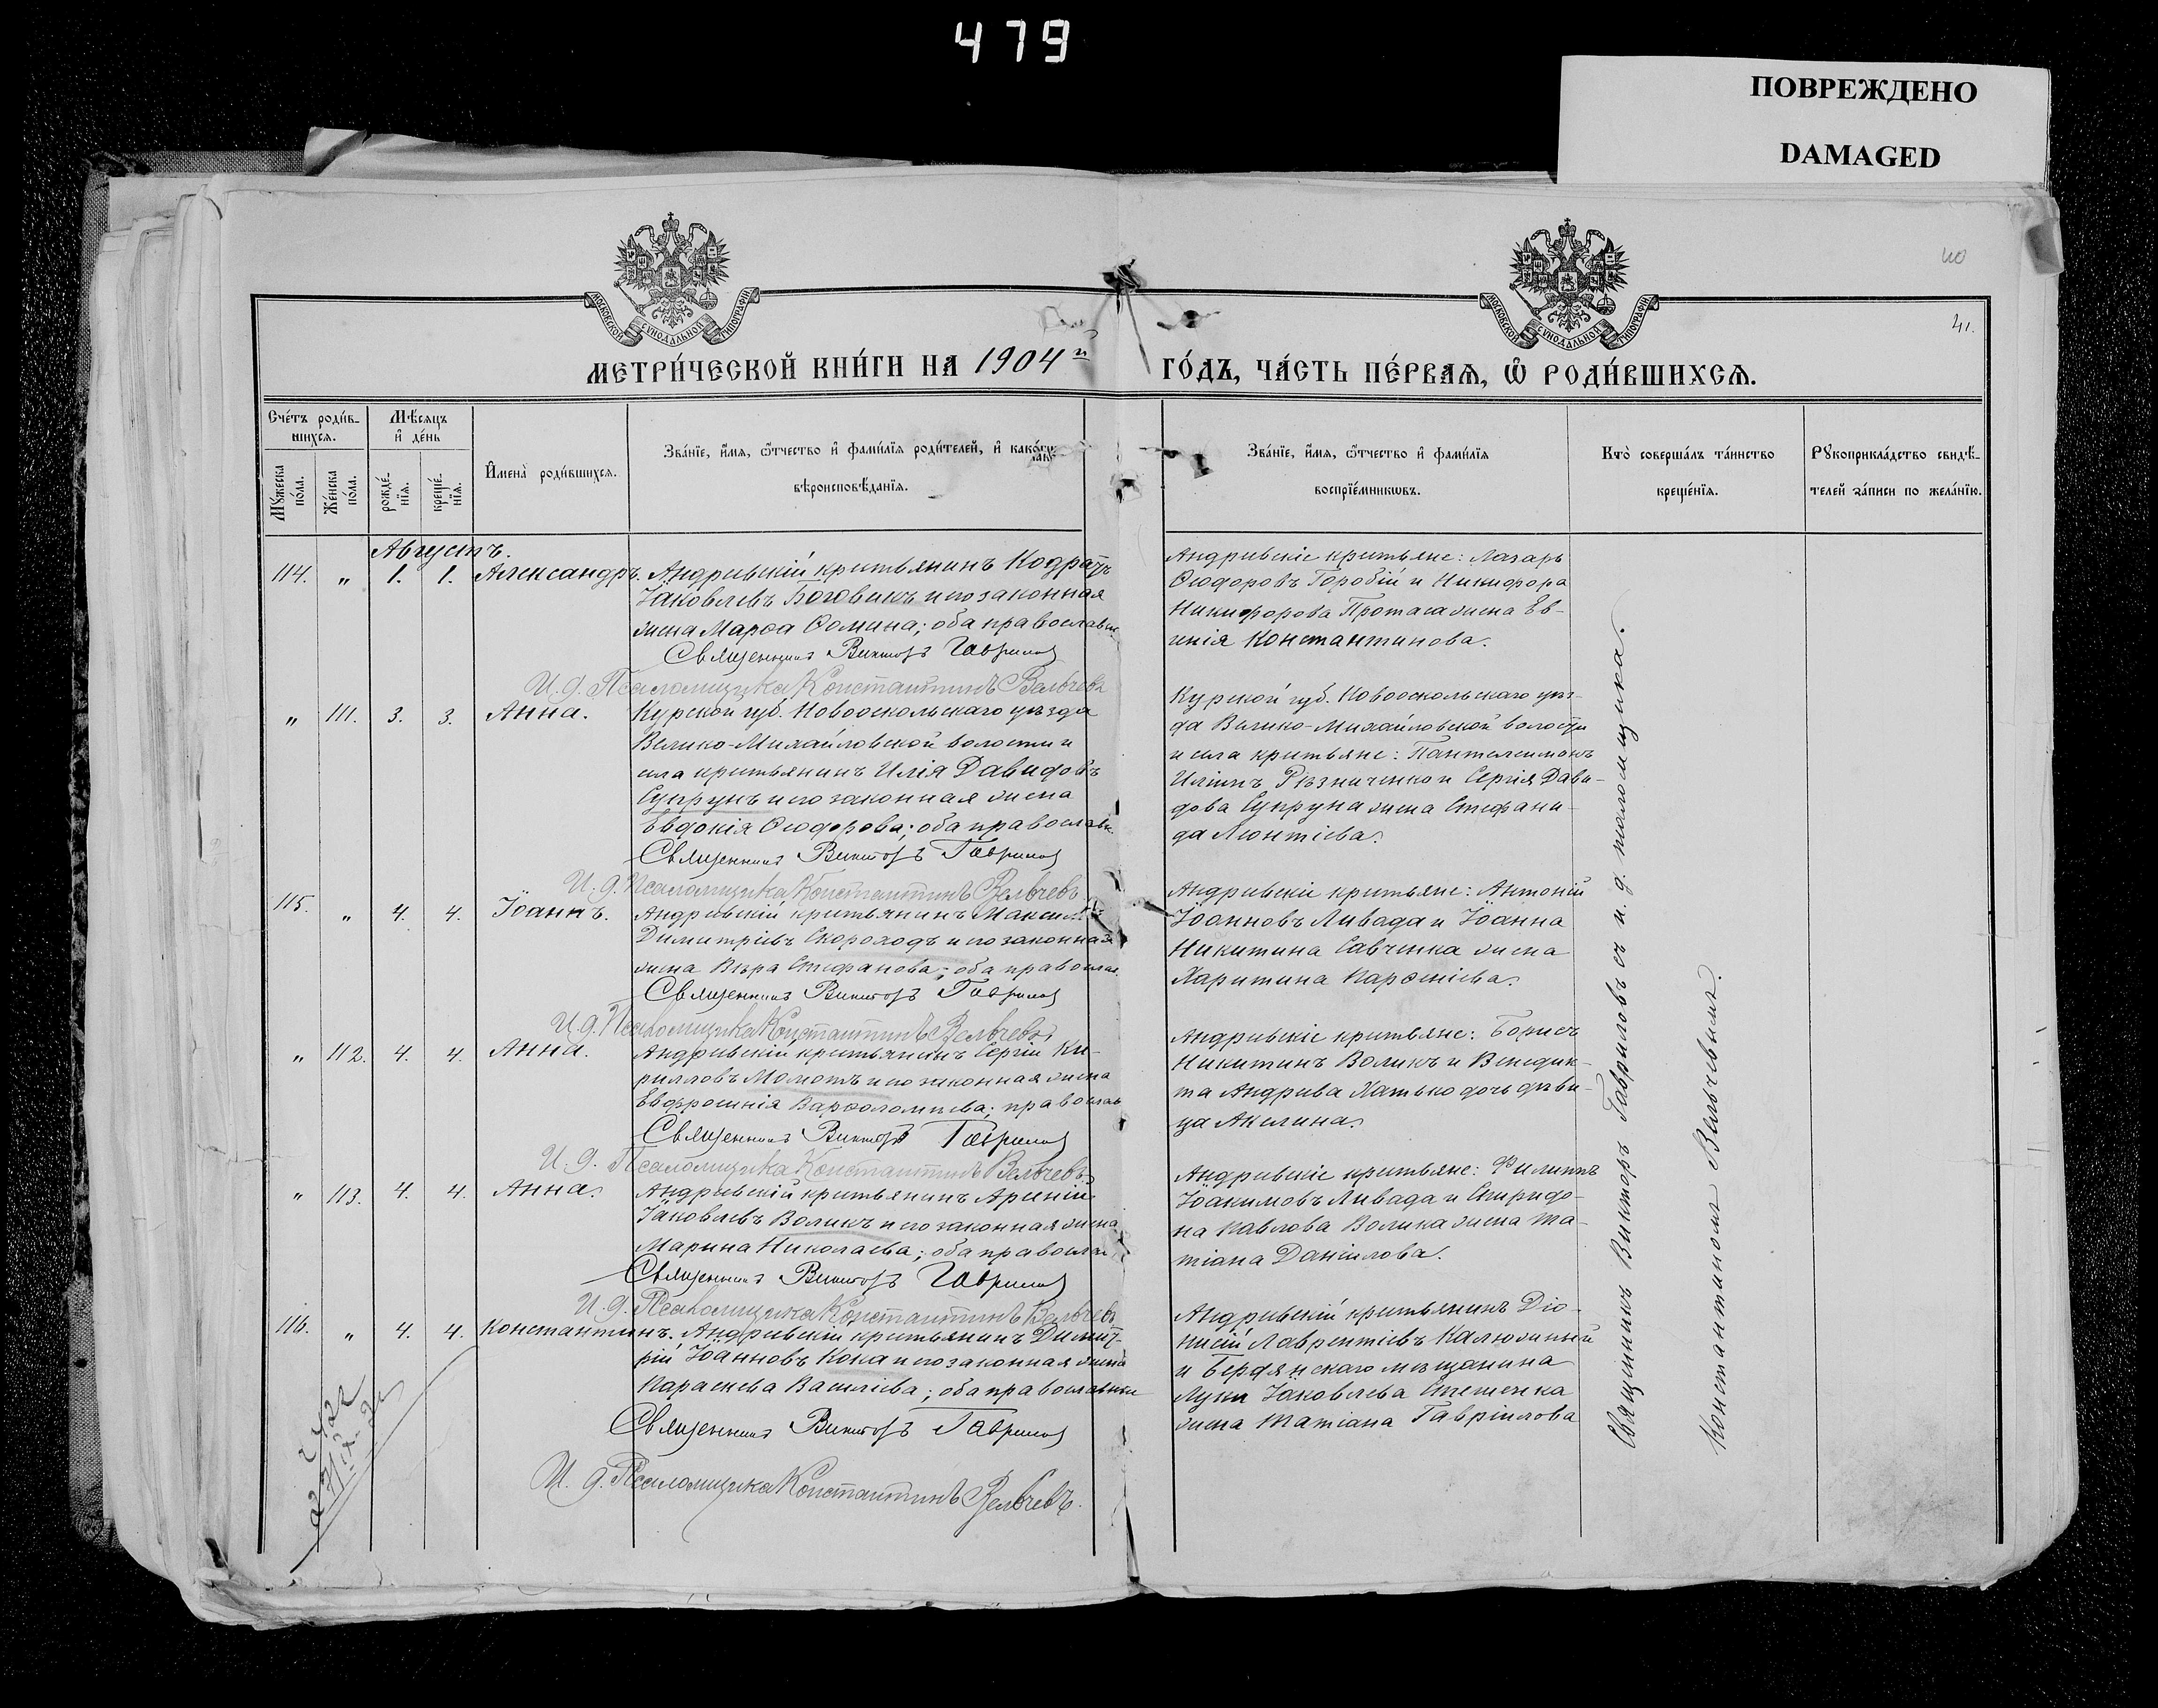 479
ПОВРЕЖДЕНО
DAMAGED
40
41.
МОСКОВСКОЙ СѴНОДАЛЬНОЙ ТИПОГРАФІИ
МОСКОВСКОЙ СѴНОДАЛЬНОЙ ТИПОГРАФІИ
МЕТРИ́ЧЕСКОЙ КНИ́ГИ НА 1904й ГО́ДЪ, ЧА́СТЬ ПЕ́РВАѦ, Ѡ҆ РОДИ́ВШИХСѦ.
Сче́тъ роди́в-
шихсѧ.
Мꙋжеска по́ла.
Же́нска по́ла.
Мѣ́сѧцъ
и҆ де́нь
рожде́-
нїѧ.
креще́-
нїѧ.
И҆мена̀ роди́вшихсѧ.
Зва́нїе, и҆́мѧ, ѻ҆́тчество и҆ фами́лїѧ роди́телей, и҆ како́гѡ
вѣроисповѣ́данїѧ.
Зва́нїе, и҆́мѧ, ѻ҆́тчество и҆ фами́лїѧ
воспрїе́мникѡвъ.
Кто̀ соверша́лъ та́инство
креще́нїѧ.
Рꙋкоприкла́дство свидѣ́-
телей за́писи по жела́нїю.
Августъ.
114. " 1. 1. Александръ. Андреевскій крестьянинъ Кодратъ
Іаковлевъ Боговикъ и его законная
жена Марѳа Ѳомина; оба православн
Священникъ Викторъ Гавриловъ
И. д. Псаломщика Константинъ Вельчевъ
Андреевскіе крестьяне: Лазарь
Ѳеодоровъ Горобій и Никифора
Никифорова Протаса жена Ев-
генія Константинова.
" 111. 3. 3. Анна. Курской губ. Новооскольскаго уѣзда
Велико-Михайловской волости и
села крестьянинъ Илія Давидовъ
Супрунъ и его законная жена
Евдокія Ѳеодорова; оба православн
Священникъ Викторъ Гавриловъ
И. д. Псаломщика Константинъ Вельчевъ
Курской губ. Новооскольскаго уѣз-
да Велико-Михайловской волости
и села крестьяне: Пантелеимонъ
Иліинъ Рѣзниченко и Сергія Дави-
дова Супруна жена Стефани-
да Леонтіева.
115. " 4. 4. Іоаннъ. Андреевскій крестьянинъ Максим
Димитріевъ Скороходъ и его законная
жена Вѣра Стефанова; оба православ
Священникъ Викторъ Гавриловъ
И. д. Псаломщика Константинъ Вельчевъ
Андреевскіе крестьяне: Антоній
Іоанновъ Ливада и Іоанна
Никитина Савченка жена
Харитина Парѳеніева.
" 112. 4. 4. Анна. Андреевскій крестьянинъ Сергій Ки-
рилловъ Момотъ и его законная жена
Евфросинія Варѳоломеева; православ
Священникъ Викторъ Гавриловъ
И. д. Псаломщика Константинъ Вельчевъ
Андреевскіе крестьяне: Борисъ
Никитинъ Воликъ и Венедик-
та Андреева Хатько дочь дѣви-
ца Акилина.
" 113. 4. 4. Анна. Андреевскій крестьянинъ Арсеній
Іаковлевъ Воликъ и его законная жена
Марина Николаева; оба православ
Священникъ Викторъ Гавриловъ
И. д. Псаломщика Константинъ Вельчевъ
Андреевскіе крестьяне: Филиппъ
Іоакимовъ Ливада и Спиридо-
на Павлова Волика жена Та-
тіана Даніилова.
116. " 4. 4. Константинъ. Андреевскій крестьянинъ Димит-
рій Іоанновъ Кока и его законная жена
Параскева Василіева; оба православные
Священникъ Викторъ Гавриловъ
И. д. Псаломщика Константинъ Вельчевъ.
Андреевскій крестьянинъ Діо-
нисій Лаврентіевъ Калюжный
и Бердянскаго мѣщанина
Луки Іаковлева Стеценка
жена Татіана Гавріилова
Священникъ Викторъ Гавриловъ съ и. д. псаломщика.
Константиномъ Вельчевымъ.